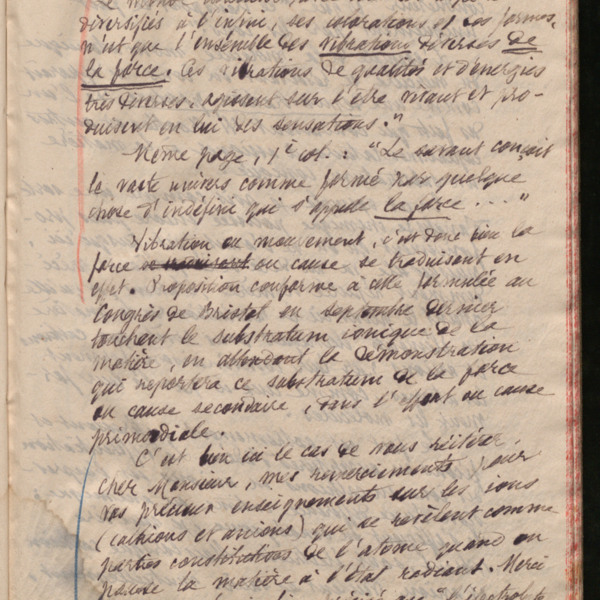 diversifiés à l'infini, ses colorations et ses formes,
n'est que l'ensemble des vibrations diverses de
la force. Ces vibrations de qualités et d'énergies
très diverses, agissent sur l'être vivant et pro-
duisent en lui des sensations."
Même page, 1è col. : "Le savant conçoit
le vaste univers comme formé par quelque
chose d'indéfini qui s'appelle la force...."
Vibration ou mouvement, c'est donc bien la
force ou cause se traduisant en
eft. Proposition conforme à celle formulée au
Congrès de Bristol en septembre dernier
touchant le substratum ionique de la
matière, en attendant la démonstration
qui reportera ce substratum de la force
ou cause secondaire, dans l'effort ou cause
primordiale.
C'est bien ici le cas de vous réitérer,
cher Monsieur, mes remerciements pour
vos précieux enseignements sur les ions
(cathions et anions) qui se révèlent comme
parties constitutives de l'atome quand on
pousse la matière à l'état radiant. Merci